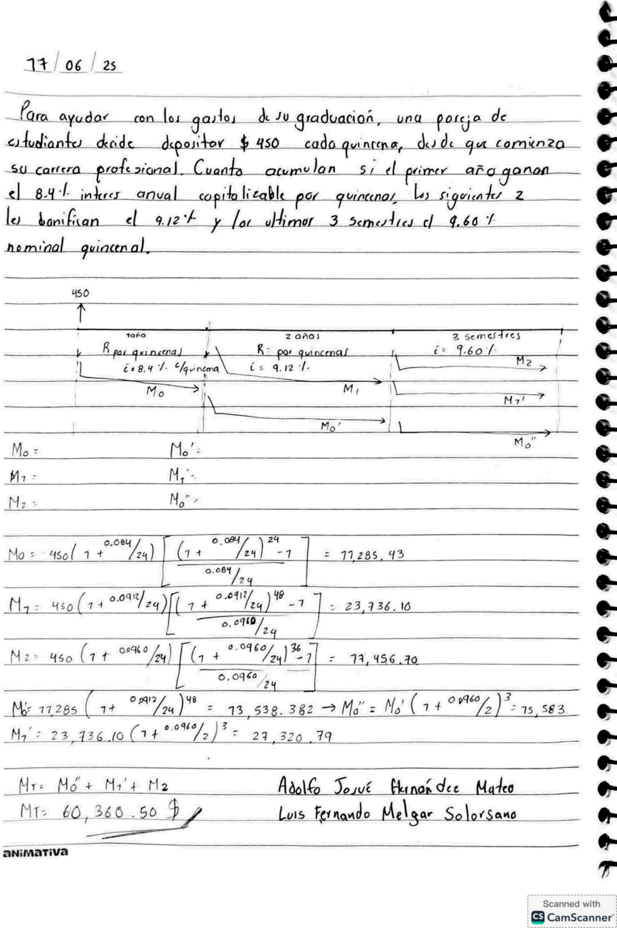 17/06/25
Para ayudar con los gastos de su graduación, una pareja de
estudiantes decide depositar $ 450 cada quincena, desde que comienza
su carrera profesional. Cuanto acumulan si el primer año ganan
el 8.4% interes anual capitalizable por quincenas, los siguientes 2
les bonifican el 9.12% y los ultimos 3 semestres el 9.60%
nominal quincenal.
450
1 año 2 años 3 semestres
R por quincenas R= por quincenas i= 9.60%
i=8.4% c/quincena i= 9.12% M2
M0 M1 M1'
M0' M0''
M0= M0'=
M1= M1'=
M2= M0''=
M0= 450(1+0.084/24)[(1+0.084/24)^24-1/0.084/24] = 11,285.43
M1= 450(1+0.0912/24)[(1+0.0912/24)^48-1/0.0960/24] = 23,736.10
M2= 450(1+0.0960/24)[(1+0.0960/24)^36-1/0.0960/24] = 17,456.70
M0'= 11,285(1+0.0912/24)^48 = 13,538.382 → M0''= M0'(1+0.0960/2)^3=15,583
M1'= 23,736.10(1+0.0960/2)^3= 27,320.79
MT= M0''+ M1'+ M2 Adolfo Josué Hernández Mateo
MT= 60,360.50 $ Luis Fernando Melgar Solorsano
aNiMaTiVa
Scanned with
CS CamScanner